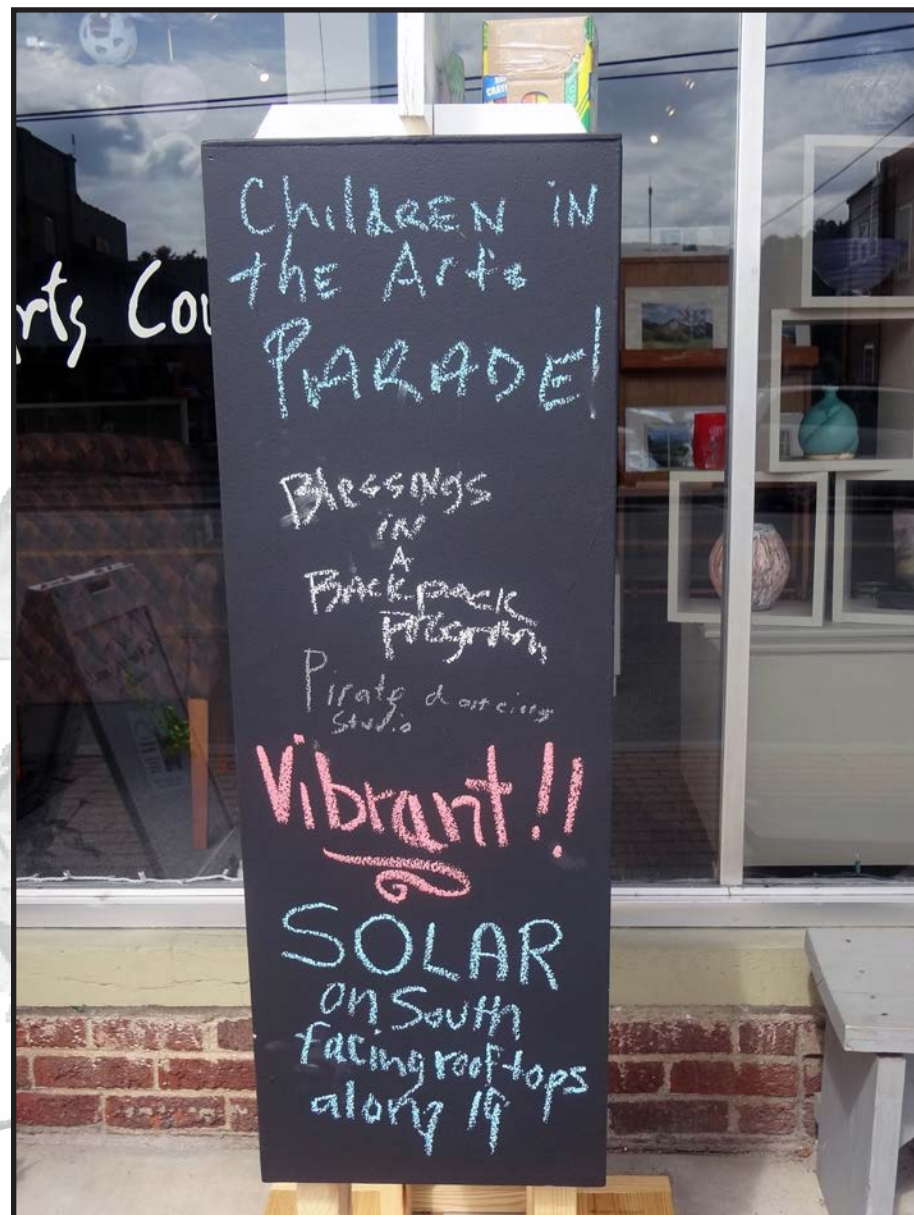 CRAY
Children in
the Arts
PARADE!
rts Cou
Blessings
in
A
Backpack
Program,
Pirate dancing
Studio
Vibrant!!
SOLAR
on South
facing rooftops
along 19